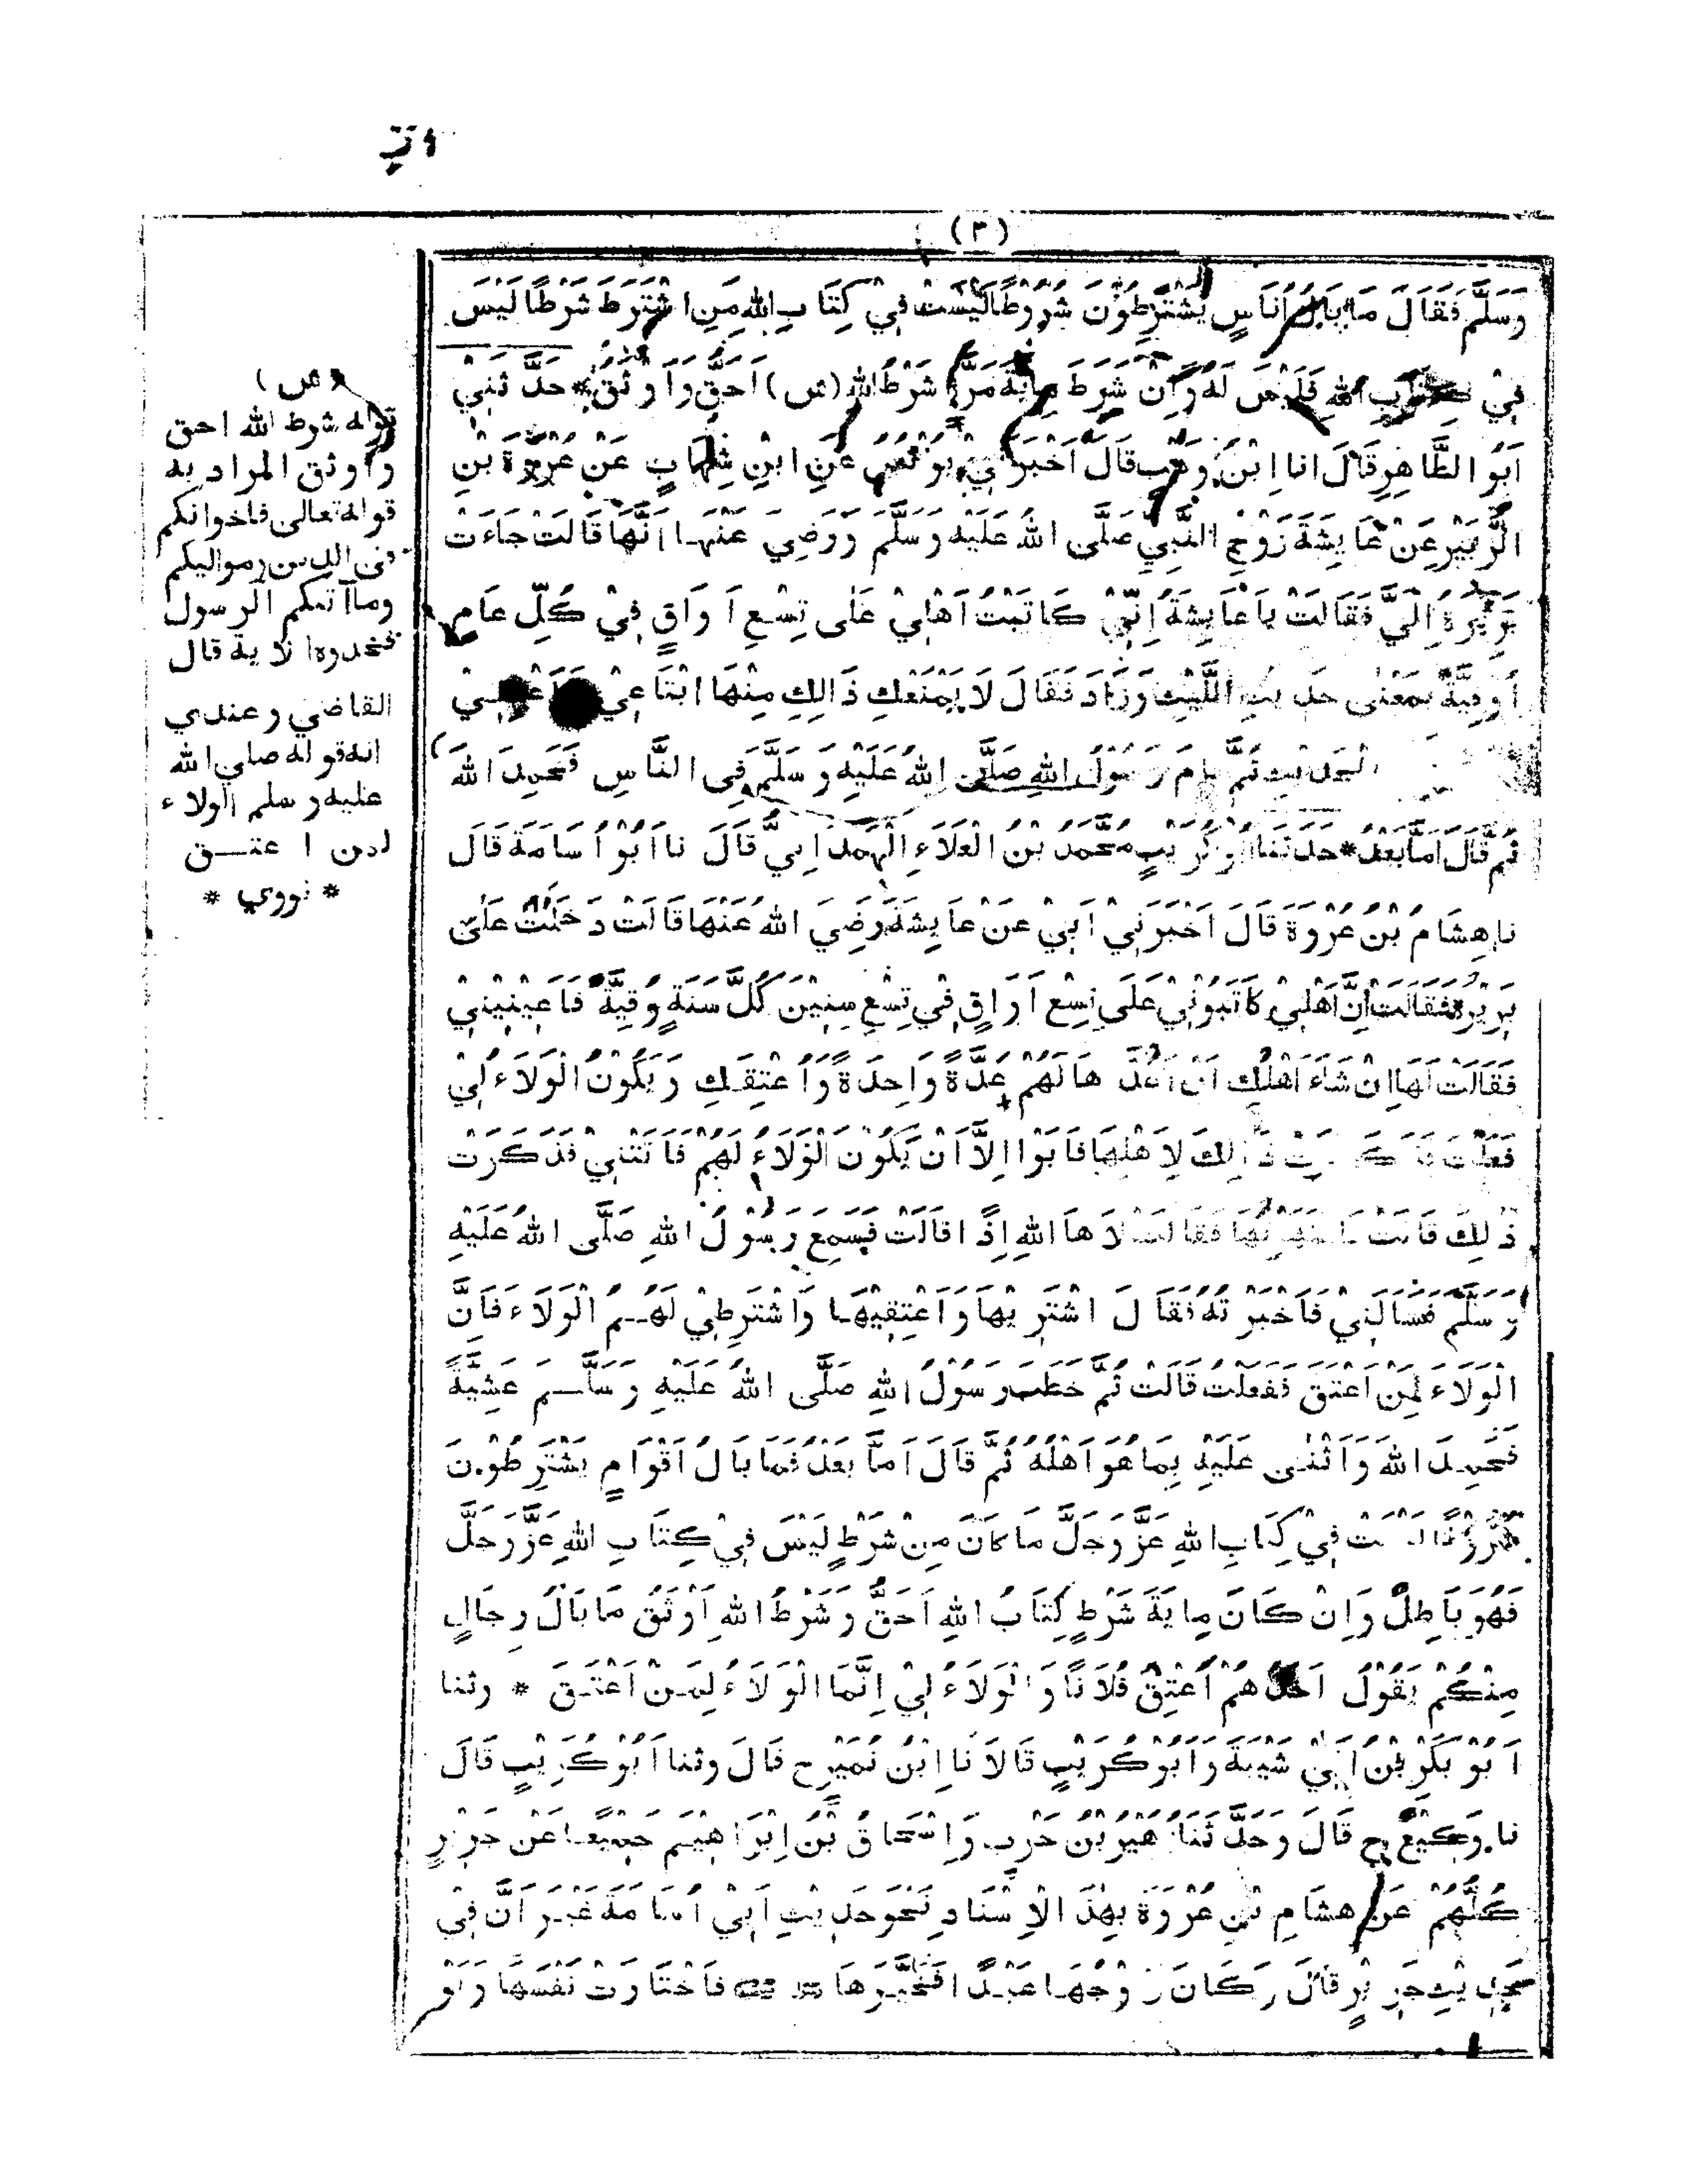 (٣)
وَسَلَّمَ فَقَالَ مَا بَالُ أُنَاسٍ يَشْتَرِطُوْنَ شُرُوْطًا لَيْسَتْ فِيْ كِتَابِ اللهِ مَنِ اشْتَرَطَ شَرْطًا لَيْسَ
فِيْ كِتَابِ اللهِ فَلَيْسَ لَهُ وَاِنْ شَرَطَ مِايَةَ مَرَّةٍ شَرْطُ اللهِ (ش) اَحَقُّ وَاَوْثَقُ * حَدَّثَنِيْ
اَبُو الطَّاهِرِ قَالَ انا اِبْنُ وَهْبٍ قَالَ اَخْبَرَنِيْ يُوْنُسُ عَنِ ابْنِ شِهَابٍ عَنْ عُرْوَةَ بْنِ
الزُّبَيْرِ عَنْ عَايِشَةَ زَوْجِ النَّبِيِّ صَلَّى اللهُ عَلَيْهِ وَسَلَّمَ وَرَضِيَ عَنْهَا اَنَّهَا قَالَتْ جَاءَتْ
بَرِيْرَةُ اِلَيَّ فَقَالَتْ يَا عَايِشَةُ اِنِّيْ كَاتَبْتُ اَهْلِيْ عَلٰى تِسْعِ اَوَاقٍ فِيْ كُلِّ عَامٍ
اُوْقِيَّةٌ بِمَعْنٰى حَدِيْثِ اللَّيْثِ وَزَادَ فَقَالَ لَا يَمْنَعْكِ ذَالِكِ مِنْهَا ابْتَاعِيْ وَاَعْتِقِيْ
الْحَدِيْثَ ثُمَّ قَامَ رَسُوْلُ اللهِ صَلَّى اللهُ عَلَيْهِ وَسَلَّمَ فِى النَّاسِ فَحَمِدَ اللهَ
ثُمَّ قَالَ اَمَّا بَعْدُ * حَدَّثَنَا اَبُوْ كُرَيْبٍ مُحَمَّدُ بْنُ الْعَلَاءِ الْهَمْدَانِيُّ قَالَ نا اَبُوْ اُسَامَةَ قَالَ
نا هِشَامُ بْنُ عُرْوَةَ قَالَ اَخْبَرَنِيْ اَبِيْ عَنْ عَايِشَةَ رَضِيَ اللهُ عَنْهَا قَالَتْ دَخَلَتْ عَلَىَّ
بَرِيْرَةُ فَقَالَتْ اِنَّ اَهْلِيْ كَاتَبُوْنِيْ عَلَى تِسْعِ اَوَاقٍ فِيْ تِسْعِ سِنِيْنَ كُلَّ سَنَةٍ وُقِيَّةٌ فَاَعِيْنِيْنِيْ
فَقَالَتْ لَهَا اِنْ شَاءَ اَهْلُكِ اَنْ اَعُدَّ هَا لَهُمْ عَدَّةً وَاحِدَةً وَاُعْتِقَكِ وَيَكُوْنُ الْوَلَاءُ لِيْ
فَعَلْتُ فَذَكَرَتْ ذَالِكَ لِاَهْلِهَا فَاَبَوْا اِلَّا اَنْ يَكُوْنَ الْوَلَاءُ لَهُمْ فَاَتَتْنِيْ فَذَكَرَتْ
ذٰلِكَ قَالَتْ فَانْتَهَرْتُهَا فَقَالَتْ لَا هَا اللهِ اِذًا قَالَتْ فَسَمِعَ رَسُوْلُ اللهِ صَلَّى اللهُ عَلَيْهِ
وَسَلَّمَ فَسَاَلَنِيْ فَاَخْبَرْتُهُ فَقَالَ اشْتَرِيْهَا وَاَعْتِقِيْهَا وَاشْتَرِطِيْ لَهُمُ الْوَلَاءَ فَاِنَّ
الْوَلَاءَ لِمَنْ اَعْتَقَ فَفَعَلْتُ قَالَتْ ثُمَّ خَطَبَ رَسُوْلُ اللهِ صَلَّى اللهُ عَلَيْهِ وَسَلَّمَ عَشِيَّةً
فَحَمِدَ اللهَ وَاَثْنٰى عَلَيْهِ بِمَا هُوَ اَهْلُهُ ثُمَّ قَالَ اَمَّا بَعْدُ فَمَا بَالُ اَقْوَامٍ يَشْتَرِطُوْنَ
شُرُوْطًا لَيْسَتْ فِيْ كِتَابِ اللهِ عَزَّ وَجَلَّ مَا كَانَ مِنْ شَرْطٍ لَيْسَ فِيْ كِتَابِ اللهِ عَزَّ وَجَلَّ
فَهُوَ بَاطِلٌ وَاِنْ كَانَ مِايَةَ شَرْطٍ كِتَابُ اللهِ اَحَقُّ وَشَرْطُ اللهِ اَوْثَقُ مَا بَالُ رِجَالٍ
مِنْكُمْ يَقُوْلُ اَحَدُهُمْ اَعْتِقْ فُلَانًا وَالْوَلَاءُ لِيْ اِنَّمَا الْوَلَاءُ لِمَنْ اَعْتَقَ * وثنا
اَبُوْ بَكْرِ بْنُ اَبِيْ شَيْبَةَ وَاَبُوْ كُرَيْبٍ قَالَا نا اِبْنُ نُمَيْرٍ ح قَالَ وثنا اَبُوْ كُرَيْبٍ قَالَ
نا وَكِيْعٌ ح قَالَ وَحَدَّثَنَا زُهَيْرُ بْنُ حَرْبٍ وَاِسْحَاقُ بْنُ اِبْرَاهِيْمَ جَمِيْعًا عَنْ جَرِيْرٍ
كُلُّهُمْ عَنْ هِشَامِ بْنِ عُرْوَةَ بِهٰذَا الْاِسْنَادِ نَحْوَ حَدِيْثِ اَبِيْ اُسَامَةَ غَيْرَ اَنَّ فِيْ
حَدِيْثِ جَرِيْرٍ قَالَ وَكَانَ زَوْجُهَا عَبْدًا فَخَيَّرَهَا فَاخْتَارَتْ نَفْسَهَا وَلَوْ
(ش)
قوله شرط الله احق
واوثق المراد به
قوله تعالى فاخوانكم
فى الدين ومواليكم
وما آتىكم الرسول
فخذوه الاية قال
القاضي وعندي
انه قوله صلي الله
عليه وسلم الولاء
لمن اعتق
* نووي *